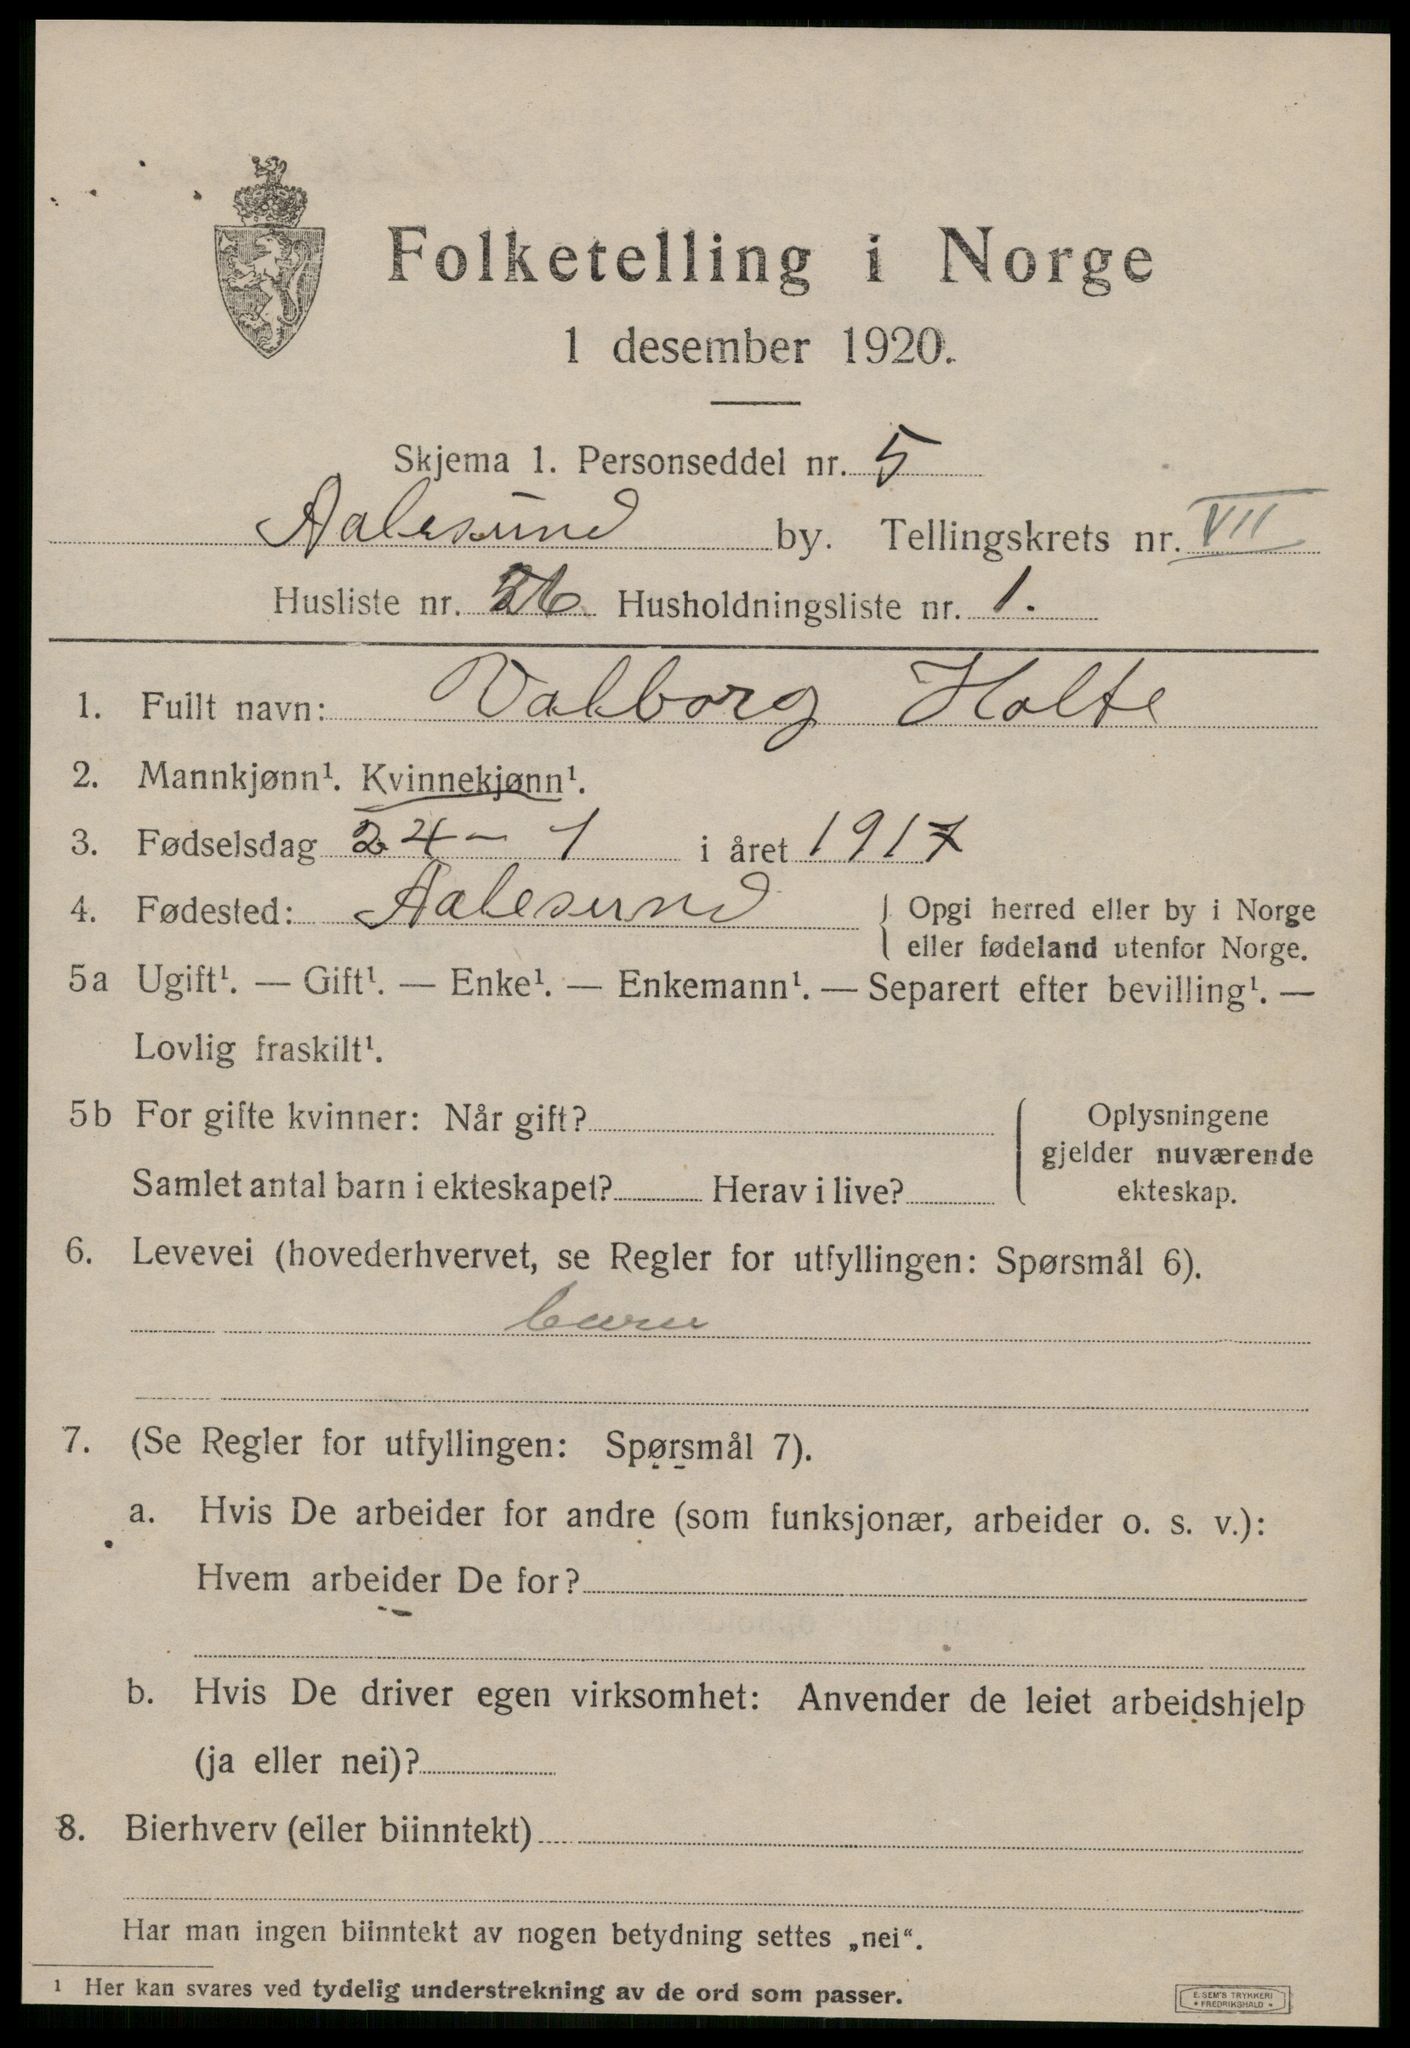 Folketelling i Norge
1 desember 1920.
Skjema 1. Personseddel nr. 5
Aalesund by. Tellingskrets nr. VII
Husliste nr. 26 Husholdningsliste nr. 1.
1. Fullt navn: Valborg Holte
2. Mannkjønn¹. Kvinnekjønn¹.
3. Fødselsdag 24-1 i året 1917
4. Fødested: Aalesund { Opgi herred eller by i Norge
eller fødeland utenfor Norge.
5a Ugift¹. — Gift¹. — Enke¹. — Enkemann¹. — Separert efter bevilling¹. —
Lovlig fraskilt¹.
5b For gifte kvinner: Når gift?
Samlet antal barn i ekteskapet? Herav i live?
{ Oplysningene
gjelder nuværende
ekteskap.
6. Levevei (hovederhvervet, se Regler for utfyllingen: Spørsmål 6).
7. (Se Regler for utfyllingen: Spørsmål 7).
a. Hvis De arbeider for andre (som funksjonær, arbeider o. s. v.):
Hvem arbeider De for?
b. Hvis De driver egen virksomhet: Anvender de leiet arbeidshjelp
(ja eller nei)?
8. Bierhverv (eller biinntekt)
Har man ingen biinntekt av nogen betydning settes „nei“.
¹ Her kan svares ved tydelig understrekning av de ord som passer.
E. SEM'S TRYKKERI
* FREDRIKSHALD *